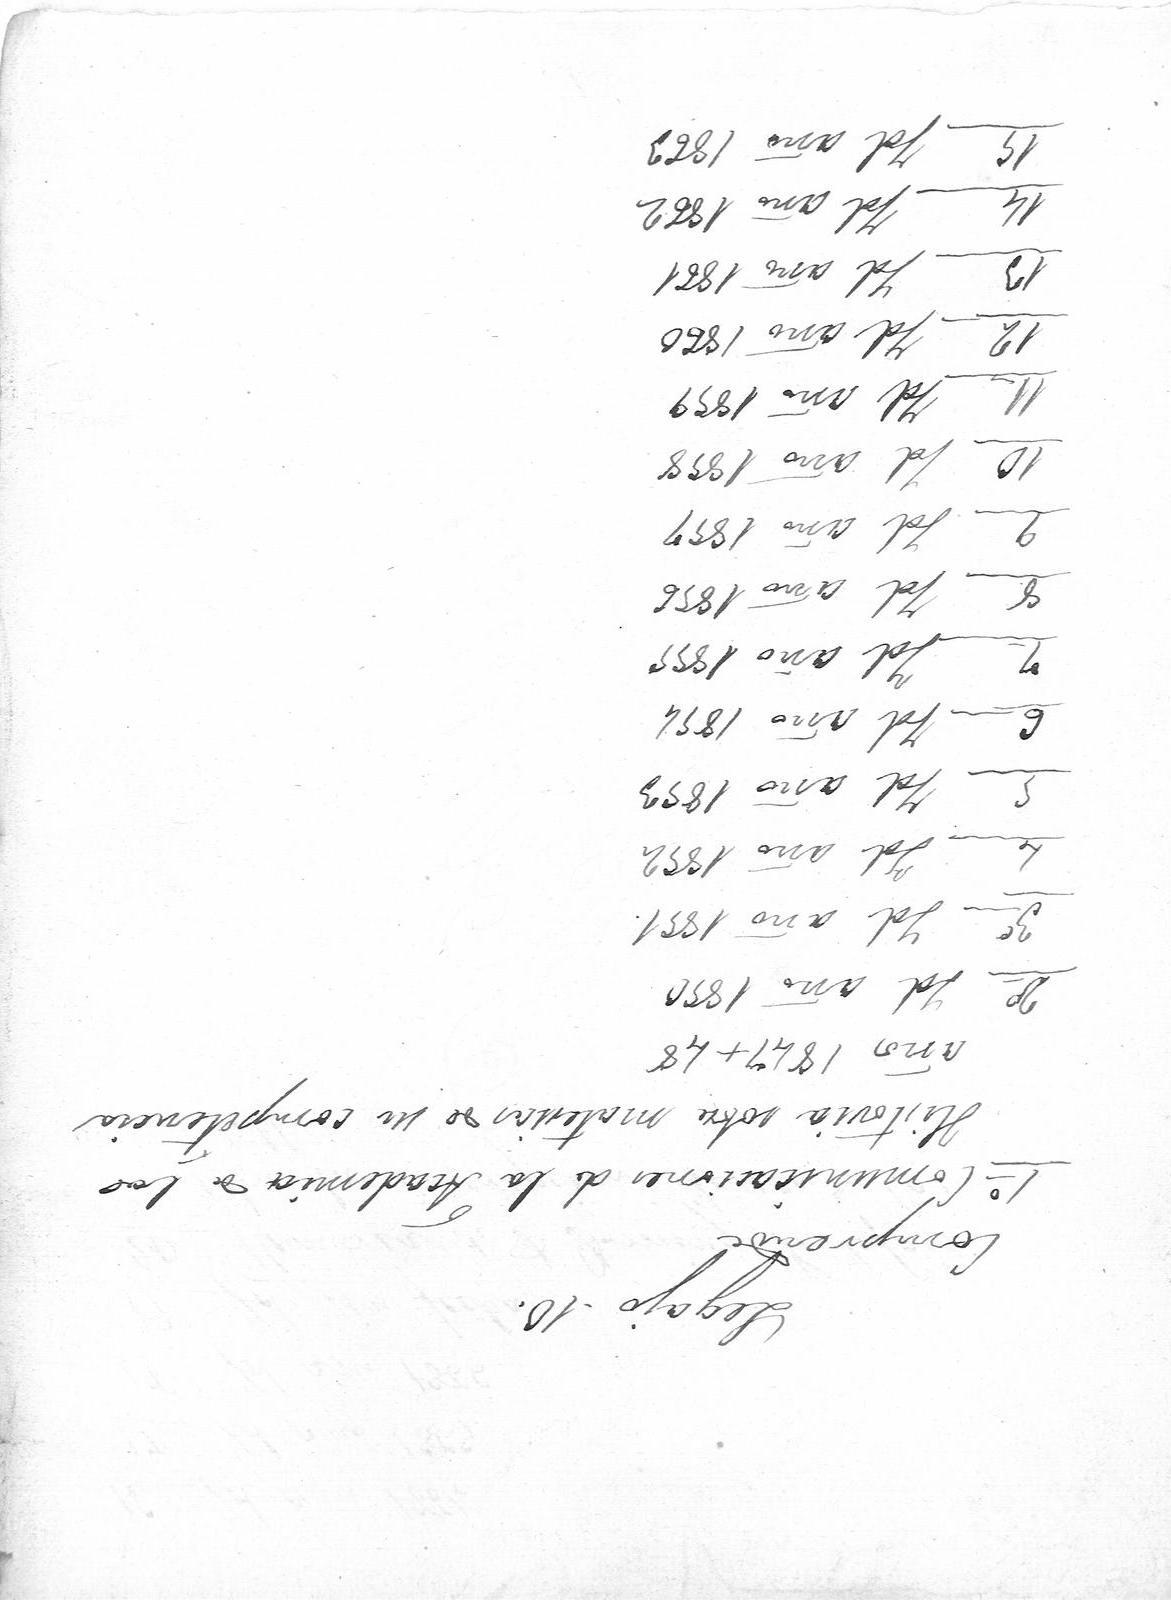 Legajo 10.
Comprende
1º Comunicaciones de la Academia de la
Historia sobre materias de su competencia
años 1847 + 48
2º Id año 1850
3º Id año 1851.
4 Id año 1852
5 Id año 1853
6 Id año 1854
7 Id año 1855
8 Id año 1856
9 Id año 1857
10 Id año 1858
11 Id año 1859
12 Id año 1860
13 Id año 1861
14 Id año 1862
15 Id año 1863